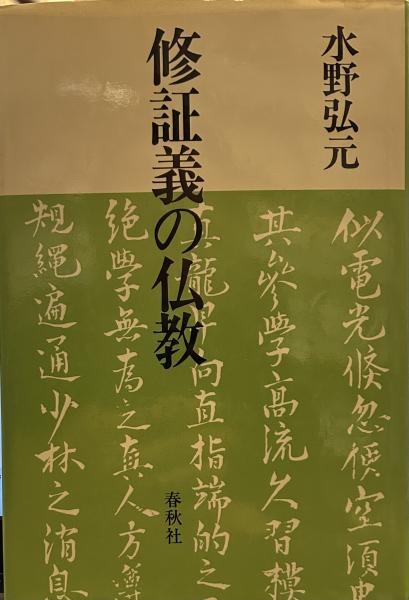 水野弘元
修証義の仏教
似電光倏忽便空須臾
其參學高流久習模
真龍早向直指端的之
絶學無為之真人方
規繩遍通少林之消息
春秋社